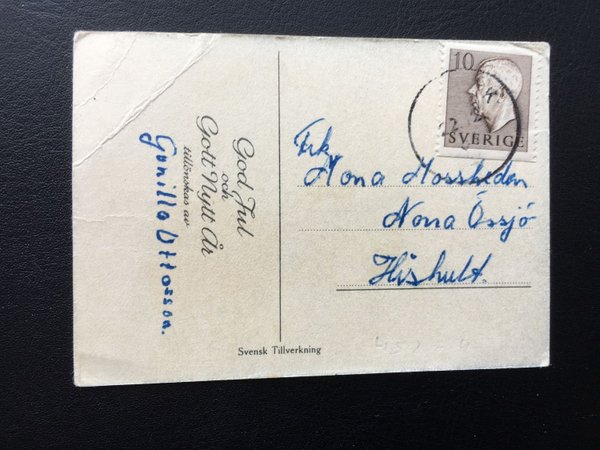 God Jul
och
Gott Nytt År
tillönskas av
Gunilla Ottosson.
10
SVERIGE
Frk.
Mona Mossheden
Norra Össjö
Hishult.
Svensk Tillverkning